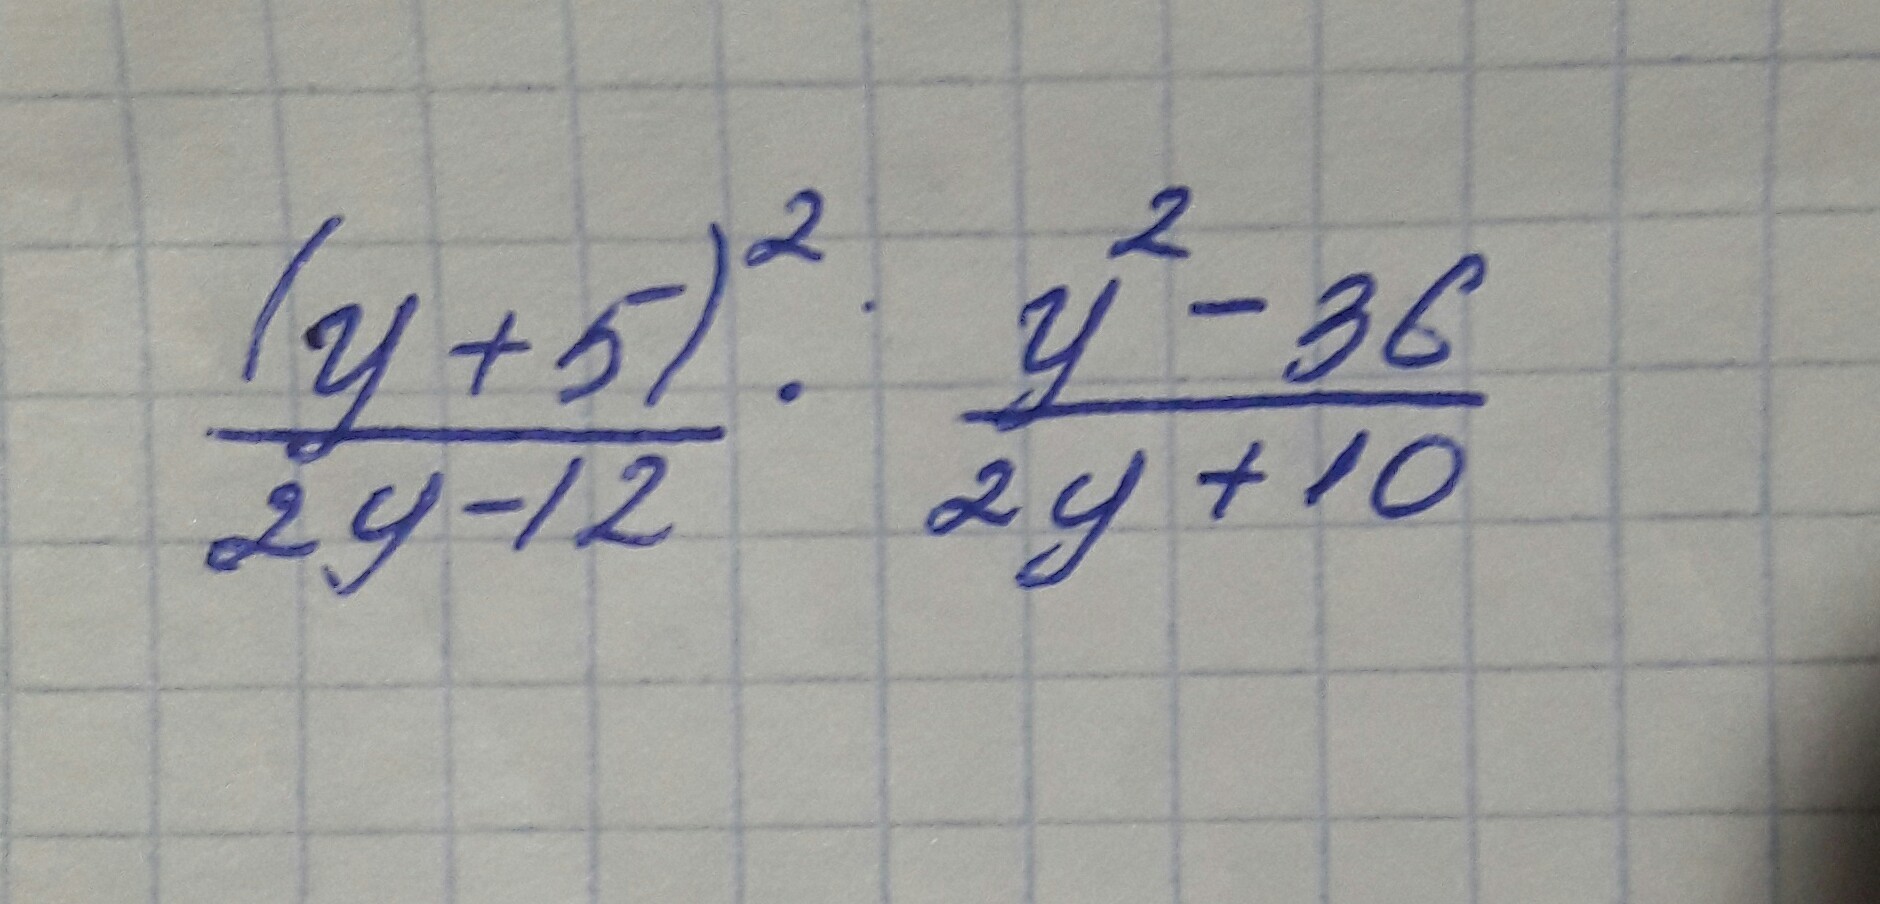 (y+5)²/2y-12 · y²-36/2y+10